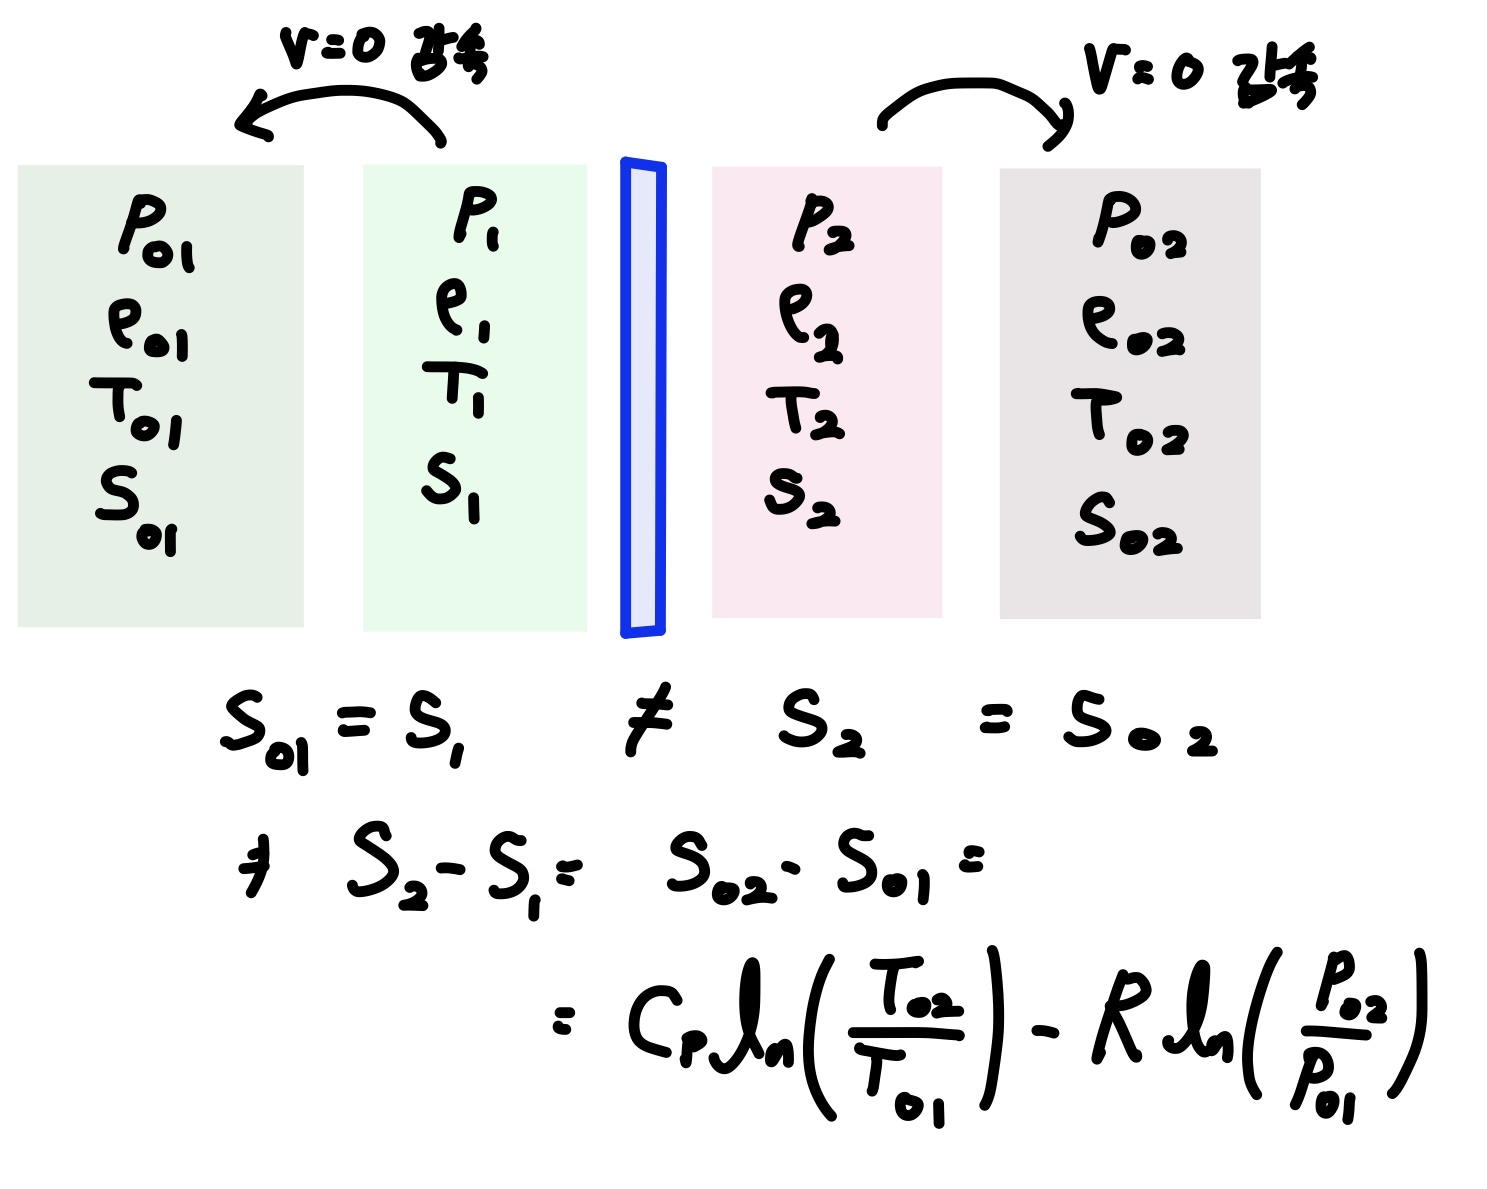 V=0 감속
V=0 감속
P₀₁
ρ₀₁
T₀₁
S₀₁
P₁
ρ₁
T₁
S₁
P₂
ρ₂
T₂
S₂
P₀₂
ρ₀₂
T₀₂
S₀₂
S₀₁ = S₁ ≠ S₂ = S₀₂
≠ S₂ - S₁ = S₀₂ - S₀₁ =
= Cₚ ln(T₀₂/T₀₁) - R ln(P₀₂/P₀₁)